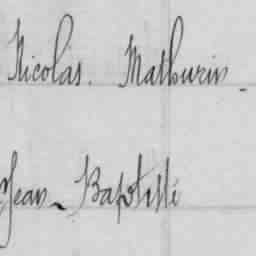 Nicolas. Mathurin -
Jean - Baptiste